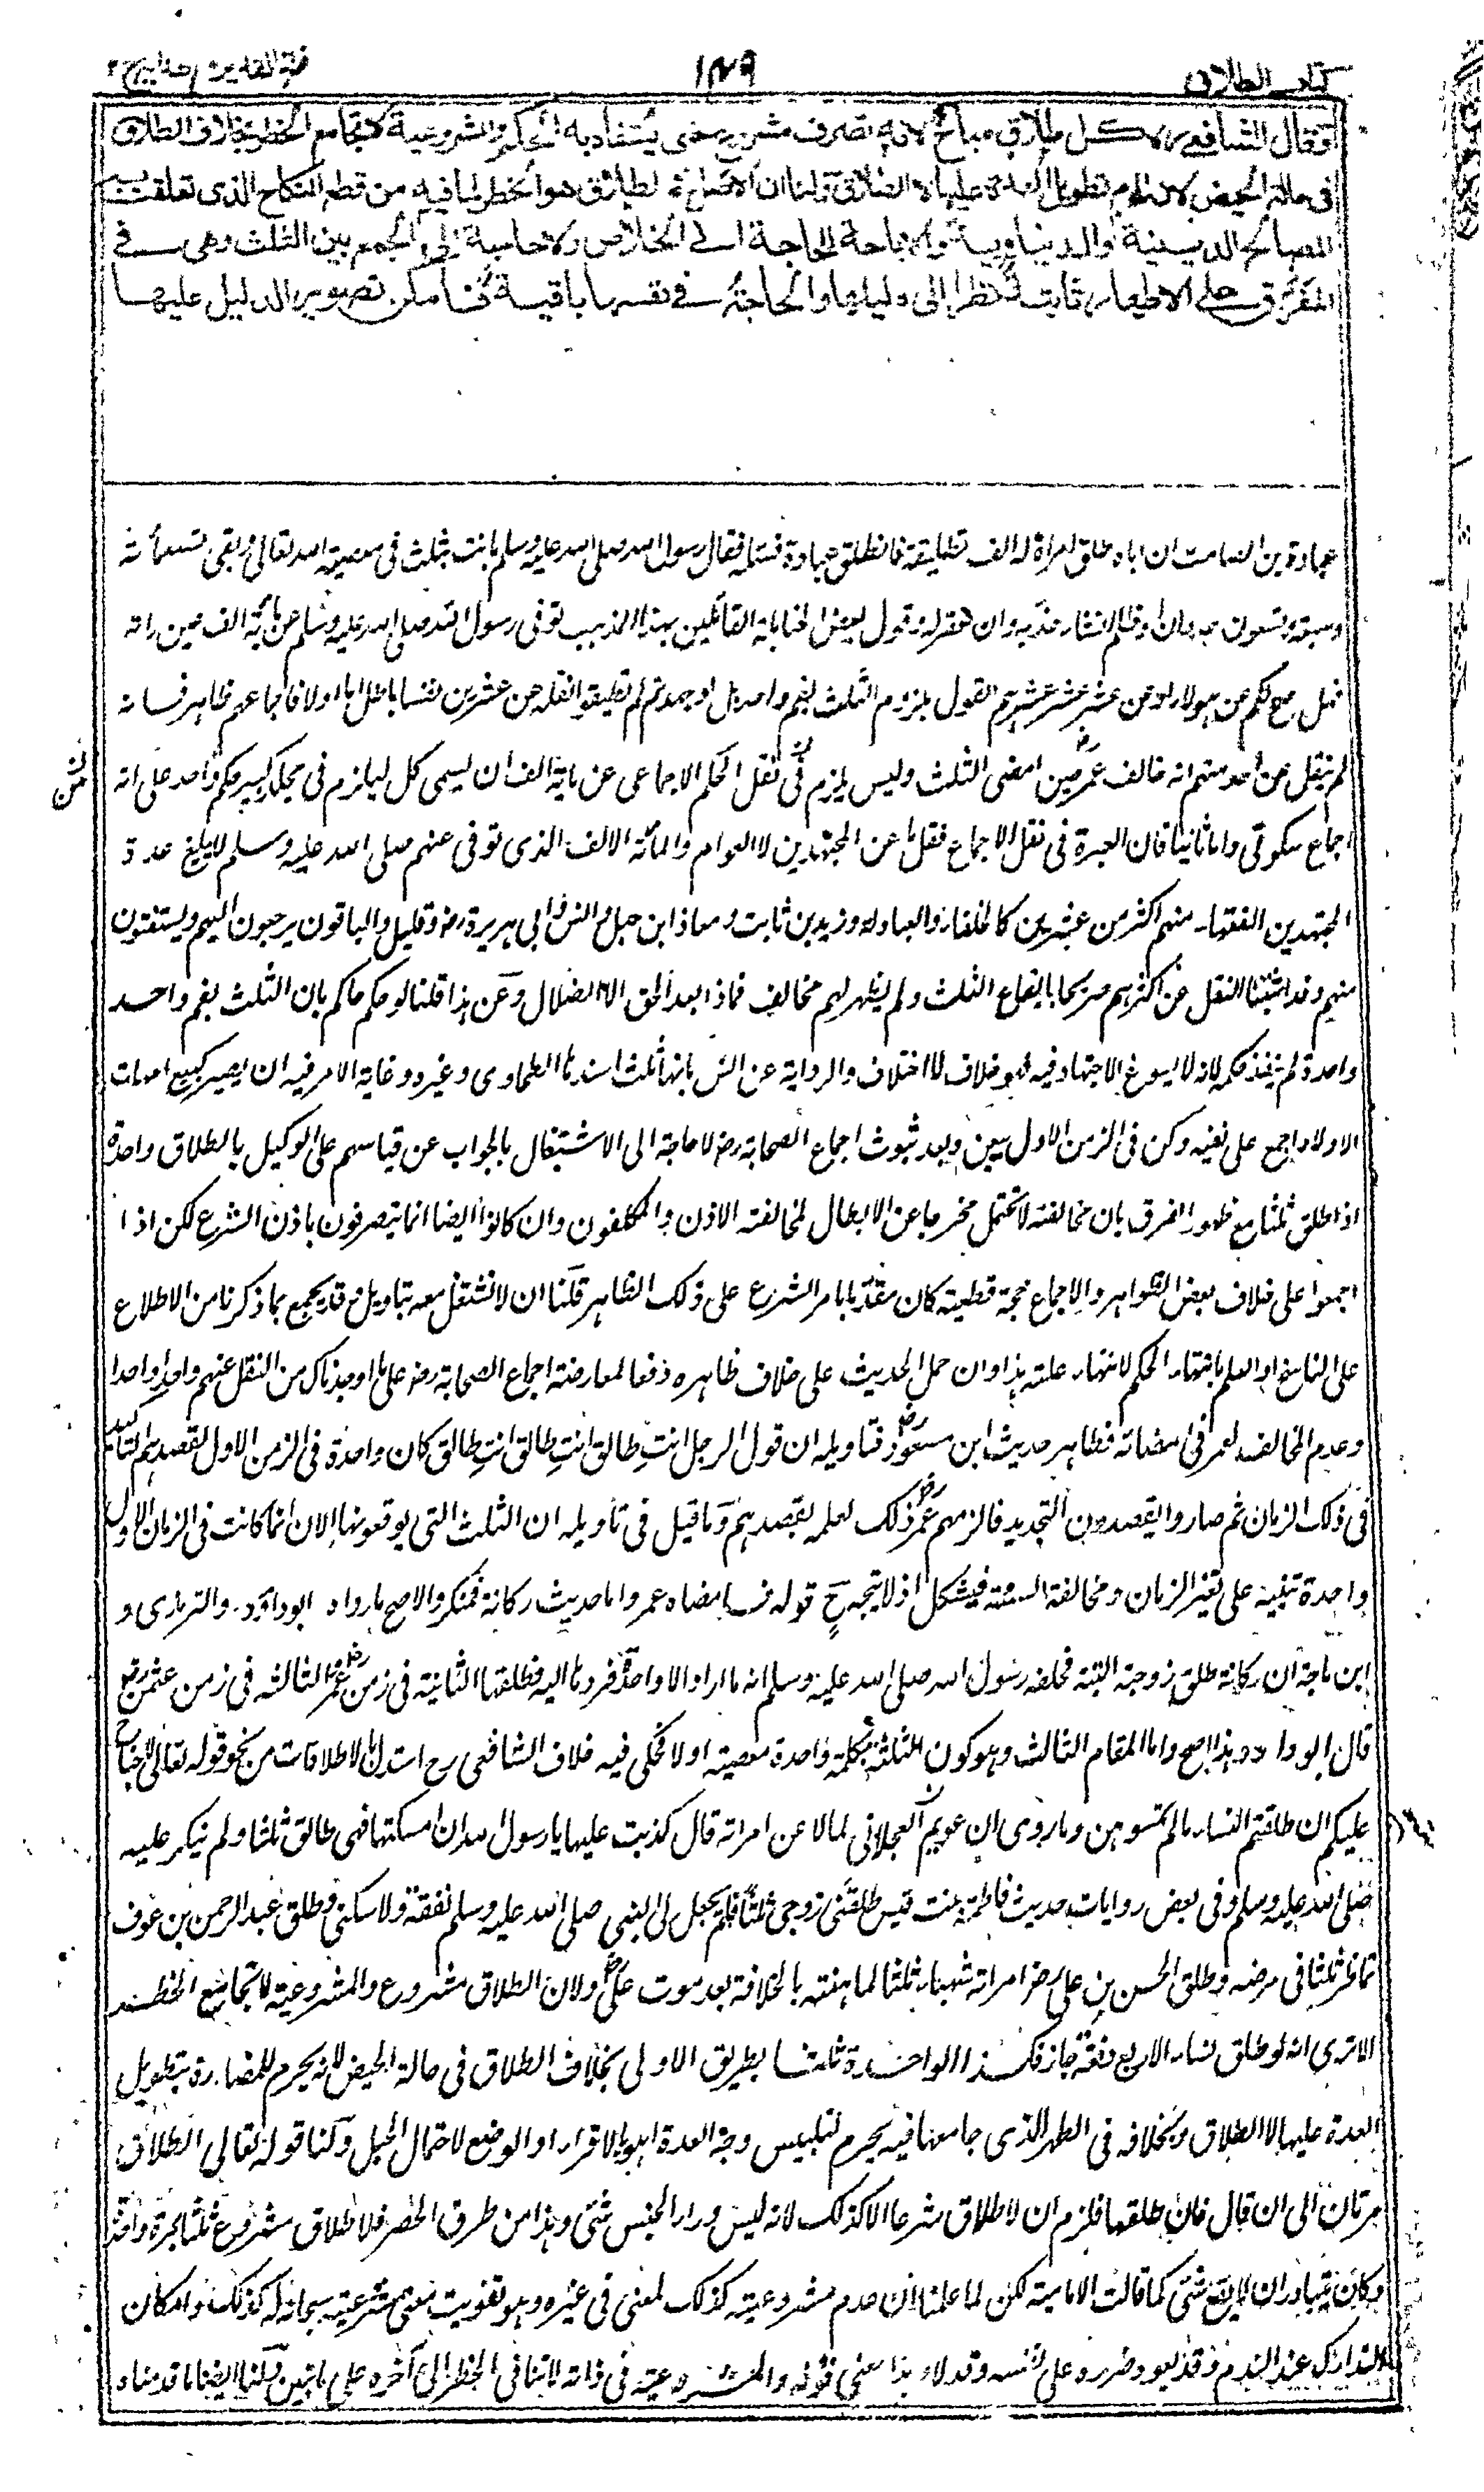 كتاب الطلاق
١٤٩
فتح القدير مع هداية ج ٢
وقال الشافعي رح كل طلاق مباح لانه تصرف مشروع حتى يستفاد به الحكم والمشروعية لا تجامع الحظر بخلاف الطلاق
في حالة الحيض لان المحرم تطويل العدة عليها لا الطلاق ولنا ان الاصل في الطلاق هو الحظر لما فيه من قطع النكاح الذي تعلقت به
المصالح الدينية والدنياوية والاباحة للحاجة الى الخلاص ولا حاجة الى الجمع بين الثلث وهي في
المفرق على الاطهار ثابتة نظرا الى دليلها والحاجة في نفسها باقية فامكن تصوير الدليل عليها
عبادة بن الصامت ان اباه طلق امرأة له الف تطليقة فانطلق عبادة فسئله فقال رسول الله صلى الله عليه وسلم بانت بثلث في معصية الله تعالى وبقي تسعمائة
وسبعة وتسعون عدوان وظلم ان شاء عذبه وان شاء غفر له وقول بعض الحنابلة القائلين بهذا المذهب توفي رسول الله صلى الله عليه وسلم عن مائة الف عين راته
فهل صح لكم عن هؤلاء او عن عشر عشر عشرهم القول بلزوم الثلث بفم واحد بل لو جهدتم لم تطيقوا نقله عن عشرين نفسا باطل اما اولا فاجماعهم ظاهر فانه
لم ينقل عن احد منهم انه خالف عمر رض حين امضى الثلث وليس يلزم في نقل الحكم الاجماعي عن ماية الف ان يسمى كل ليلزم في مجلد كبير حكم واحد على انه
اجماع سكوتي واما ثانيا فان العبرة في نقل الاجماع نقل ما عن المجتهدين لا العوام والمائة الالف الذي توفي عنهم صلى الله عليه وسلم لا يبلغ عدة
المجتهدين الفقهاء منهم اكثر من عشرين كالخلفاء والعبادلة وزيد بن ثابت ومعاذ ابن جبل وانس وابي هريرة رض وقليل والباقون يرجعون اليهم ويستفتون
منهم وقد اثبتنا النقل عن اكثرهم صريحا بايقاع الثلث ولم يظهر لهم مخالف فماذا بعد الحق الا الضلال وعن هذا قلنا لو حكم حاكم بان الثلث بفم واحد
واحدة لم ينفذ حكمه لانه لا يسوغ الاجتهاد فيه فهو خلاف لا اختلاف والرواية عن انس بانها ثلث اسندها الطحاوي وغيره وغاية الامر فيه ان يصير كبيع امهات
الاولاد اجمع على نفيه وكن في الزمن الاول يبعن وبعد ثبوت اجماع الصحابة رض لا حاجة الى الاشتغال بالجواب عن قياسهم على الوكيل بالطلاق واحدة
اذا طلق ثلثا مع ظهور الفرق بان مخالفته لا تحتمل مخرجا عن الابطال لمخالفته الاذن والمكلفون وان كانوا ايضا انما يتصرفون باذن الشرع لكن اذا
اجمعوا على خلاف بعض الظواهر والاجماع حجة قطعية كان مقدما بامر الشرع على ذلك الظاهر قلنا ان لا نشتغل معه بتاويل وقد يجمع بما ذكرنا من الاطلاع
على الناسخ او العلم بانتهاء الحكم لانتهاء علته هذا وان حمل الحديث على خلاف ظاهره دفعا لمعارضة اجماع الصحابة رض على ما اوجدناك من النقل عنهم واحدا واحدا
وعدم المخالف لعمر في امضائه فظاهر حديث ابن مسعود رض فتاويله ان قول الرجل انتِ طالق انتِ طالق انتِ طالق كان واحدة في الزمن الاول لقصدهم التاكيد
في ذلك الزمان ثم صاروا يقصدون التجديد فالزمهم عمر رض ذلك لعلمه بقصدهم وما قيل في تاويله ان الثلث التي يوقعونها الان انما كانت في الزمان الاول
واحدة تنبيه على تغير الزمان ومخالفة السنة فيشكل اذ لا يتجه ح قوله فامضاه عمر واما حديث ركانة فمنكر والاصح ما رواه ابو داود والترمذي و
ابن ماجة ان ركانة طلق زوجته البتة فحلفه رسول الله صلى الله عليه وسلم انه ما اراد الا واحدة فردها اليه فطلقها الثانية في زمن عمر رض والثالثة في زمن عثمن رض
قال ابو داود هذا اصح واما المقام الثالث وهو كون الثلث بكلمة واحدة معصية اولا فحكى فيه خلاف الشافعي رح استدل بالاطلاقات من نحو قوله تعالى لا جناح
عليكم ان طلقتم النساء ما لم تمسوهن وما روى ان عويمر العجلاني لما لاعن امراته قال كذبت عليها يا رسول الله ان امسكتها فهي طالق ثلثا ولم ينكر عليه
صلى الله عليه وسلم وفي بعض روايات حديث فاطمة بنت قيس طلقني زوجي ثلثا فلم يجعل لي النبي صلى الله عليه وسلم نفقة ولا سكنى وطلق عبد الرحمن بن عوف
تماضر ثلثا في مرضه وطلق الحسن بن علي رض امراته شهباء ثلثا لما هنته بالخلافة بعد موت علي رض ولان الطلاق مشروع والمشروعية لا تجامع الحظر
الا ترى انه لو طلق نساءه الاربع دفعة جاز فكذا الواحدة ثلثا بطريق الاولى بخلاف الطلاق في حالة الحيض لانه يحرم للمضارة بتطويل
العدة عليها لا الطلاق وبخلافه في الطهر الذي جامعها فيه يحرم لتلبيس وجه العدة اهو بالاقراء او الوضع لاحتمال الحبل ولنا قوله تعالى الطلاق
مرتان الى ان قال فان طلقها فلزم ان لا طلاق شرعا الا كذلك لانه ليس وراء الجنس شيء وهذا من طرق الحصر فلا طلاق مشروع ثلثا بمرة واحدة
وكان يتبادر ان لا يقع شيء كما قالت الامامية لكن لما علمنا ان عدم مشروعيته كذلك لمعنى في غيره وهو تفويت معنى شرعيته سبحانه له كذلك وامكان
التدارك عند الندم وقد يعود ضرره على نفسه وقد لا هذا معنى قوله والمشروعية في ذاته لا تنافي الحظر الى آخره على ما تبين قلنا ايضا ما قدمناه